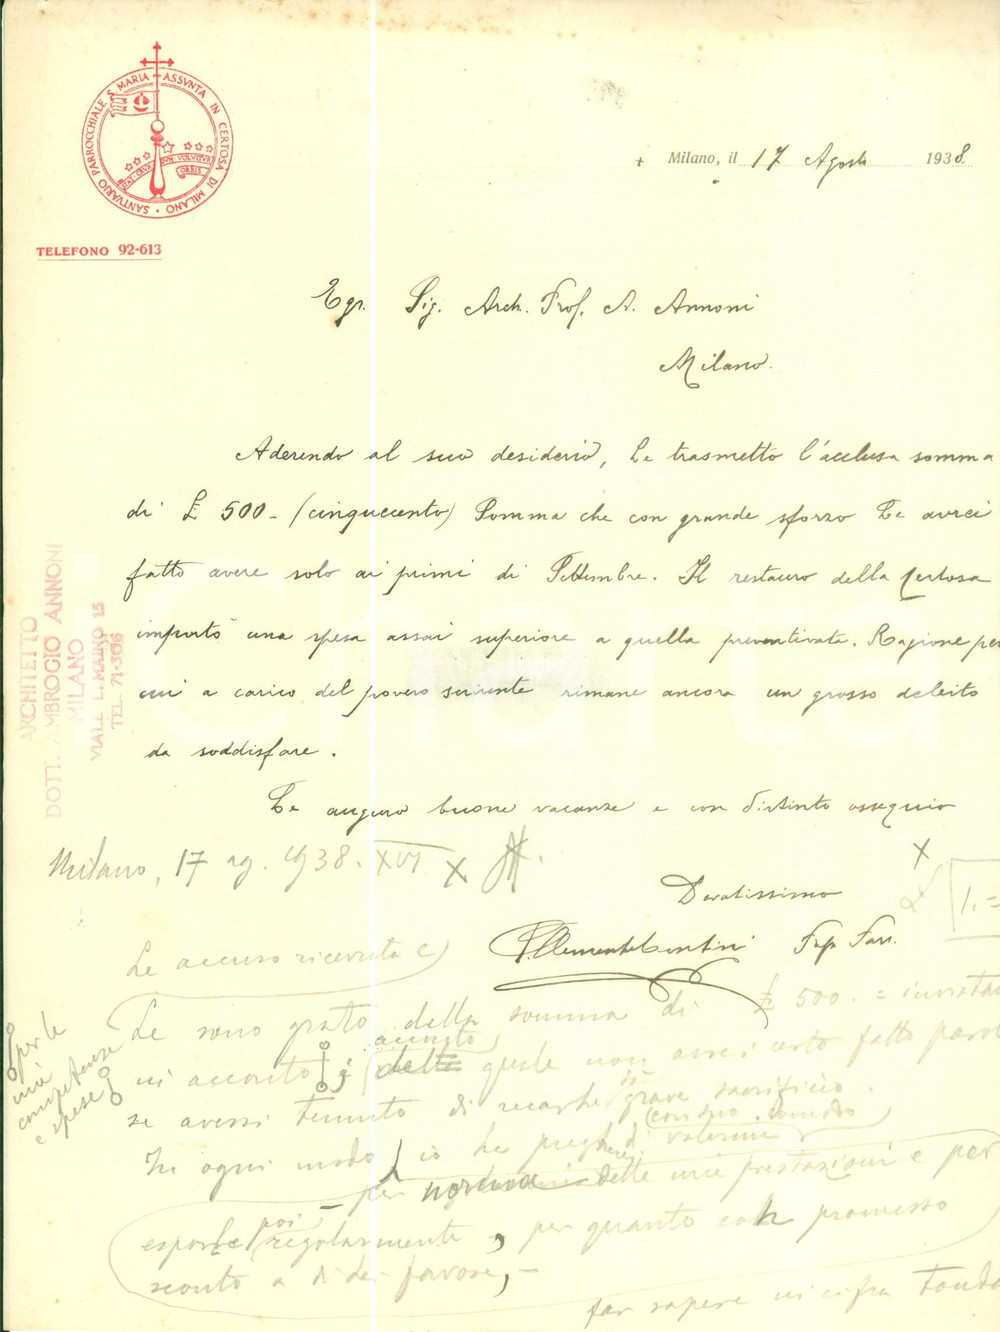 SANTVARIO PARROCCHIALE S. MARIA ASSVNTA IN CERTOSA DI MILANO
STAT CRVX DVM VOLVITVR ORBIS
TELEFONO 92-613
Milano, il 17 Agosto 1938.
Egr. Sig. Arch. Prof. A. Annoni
Milano.
Aderendo al suo desiderio, Le trasmetto l'acclusa somma
di £ 500 - (cinquecento) Somma che con grande sforzo Le avrei
fatto avere solo ai primi di Settembre. Il restauro della Certosa
importò una spesa assai superiore a quella preventivata. Ragione per
cui a carico del povero scrivente rimane ancora un grosso debito
da soddisfare.
Le auguro buone vacanze e con distinto ossequio
Devotissimo
ARCHITETTO
DOTT. AMBROGIO ANNONI
MILANO
VIALE L. MAINO 15
TEL. 71-306
Milano, 17 ag. 1938. XVI
Le accuso ricevuta e
Le sono grato della somma di £ 500. =
in acconto
acconto
per le
mie
competenze
e spese
se avessi temuto di recarLe grave sacrificio.
In ogni modo, io La pregherei di
per delle mie prestazioni e per
esporLe poi regolarmente, per quanto con promesso
sconto a di Lei favore, -
far sapere in cifra tonda